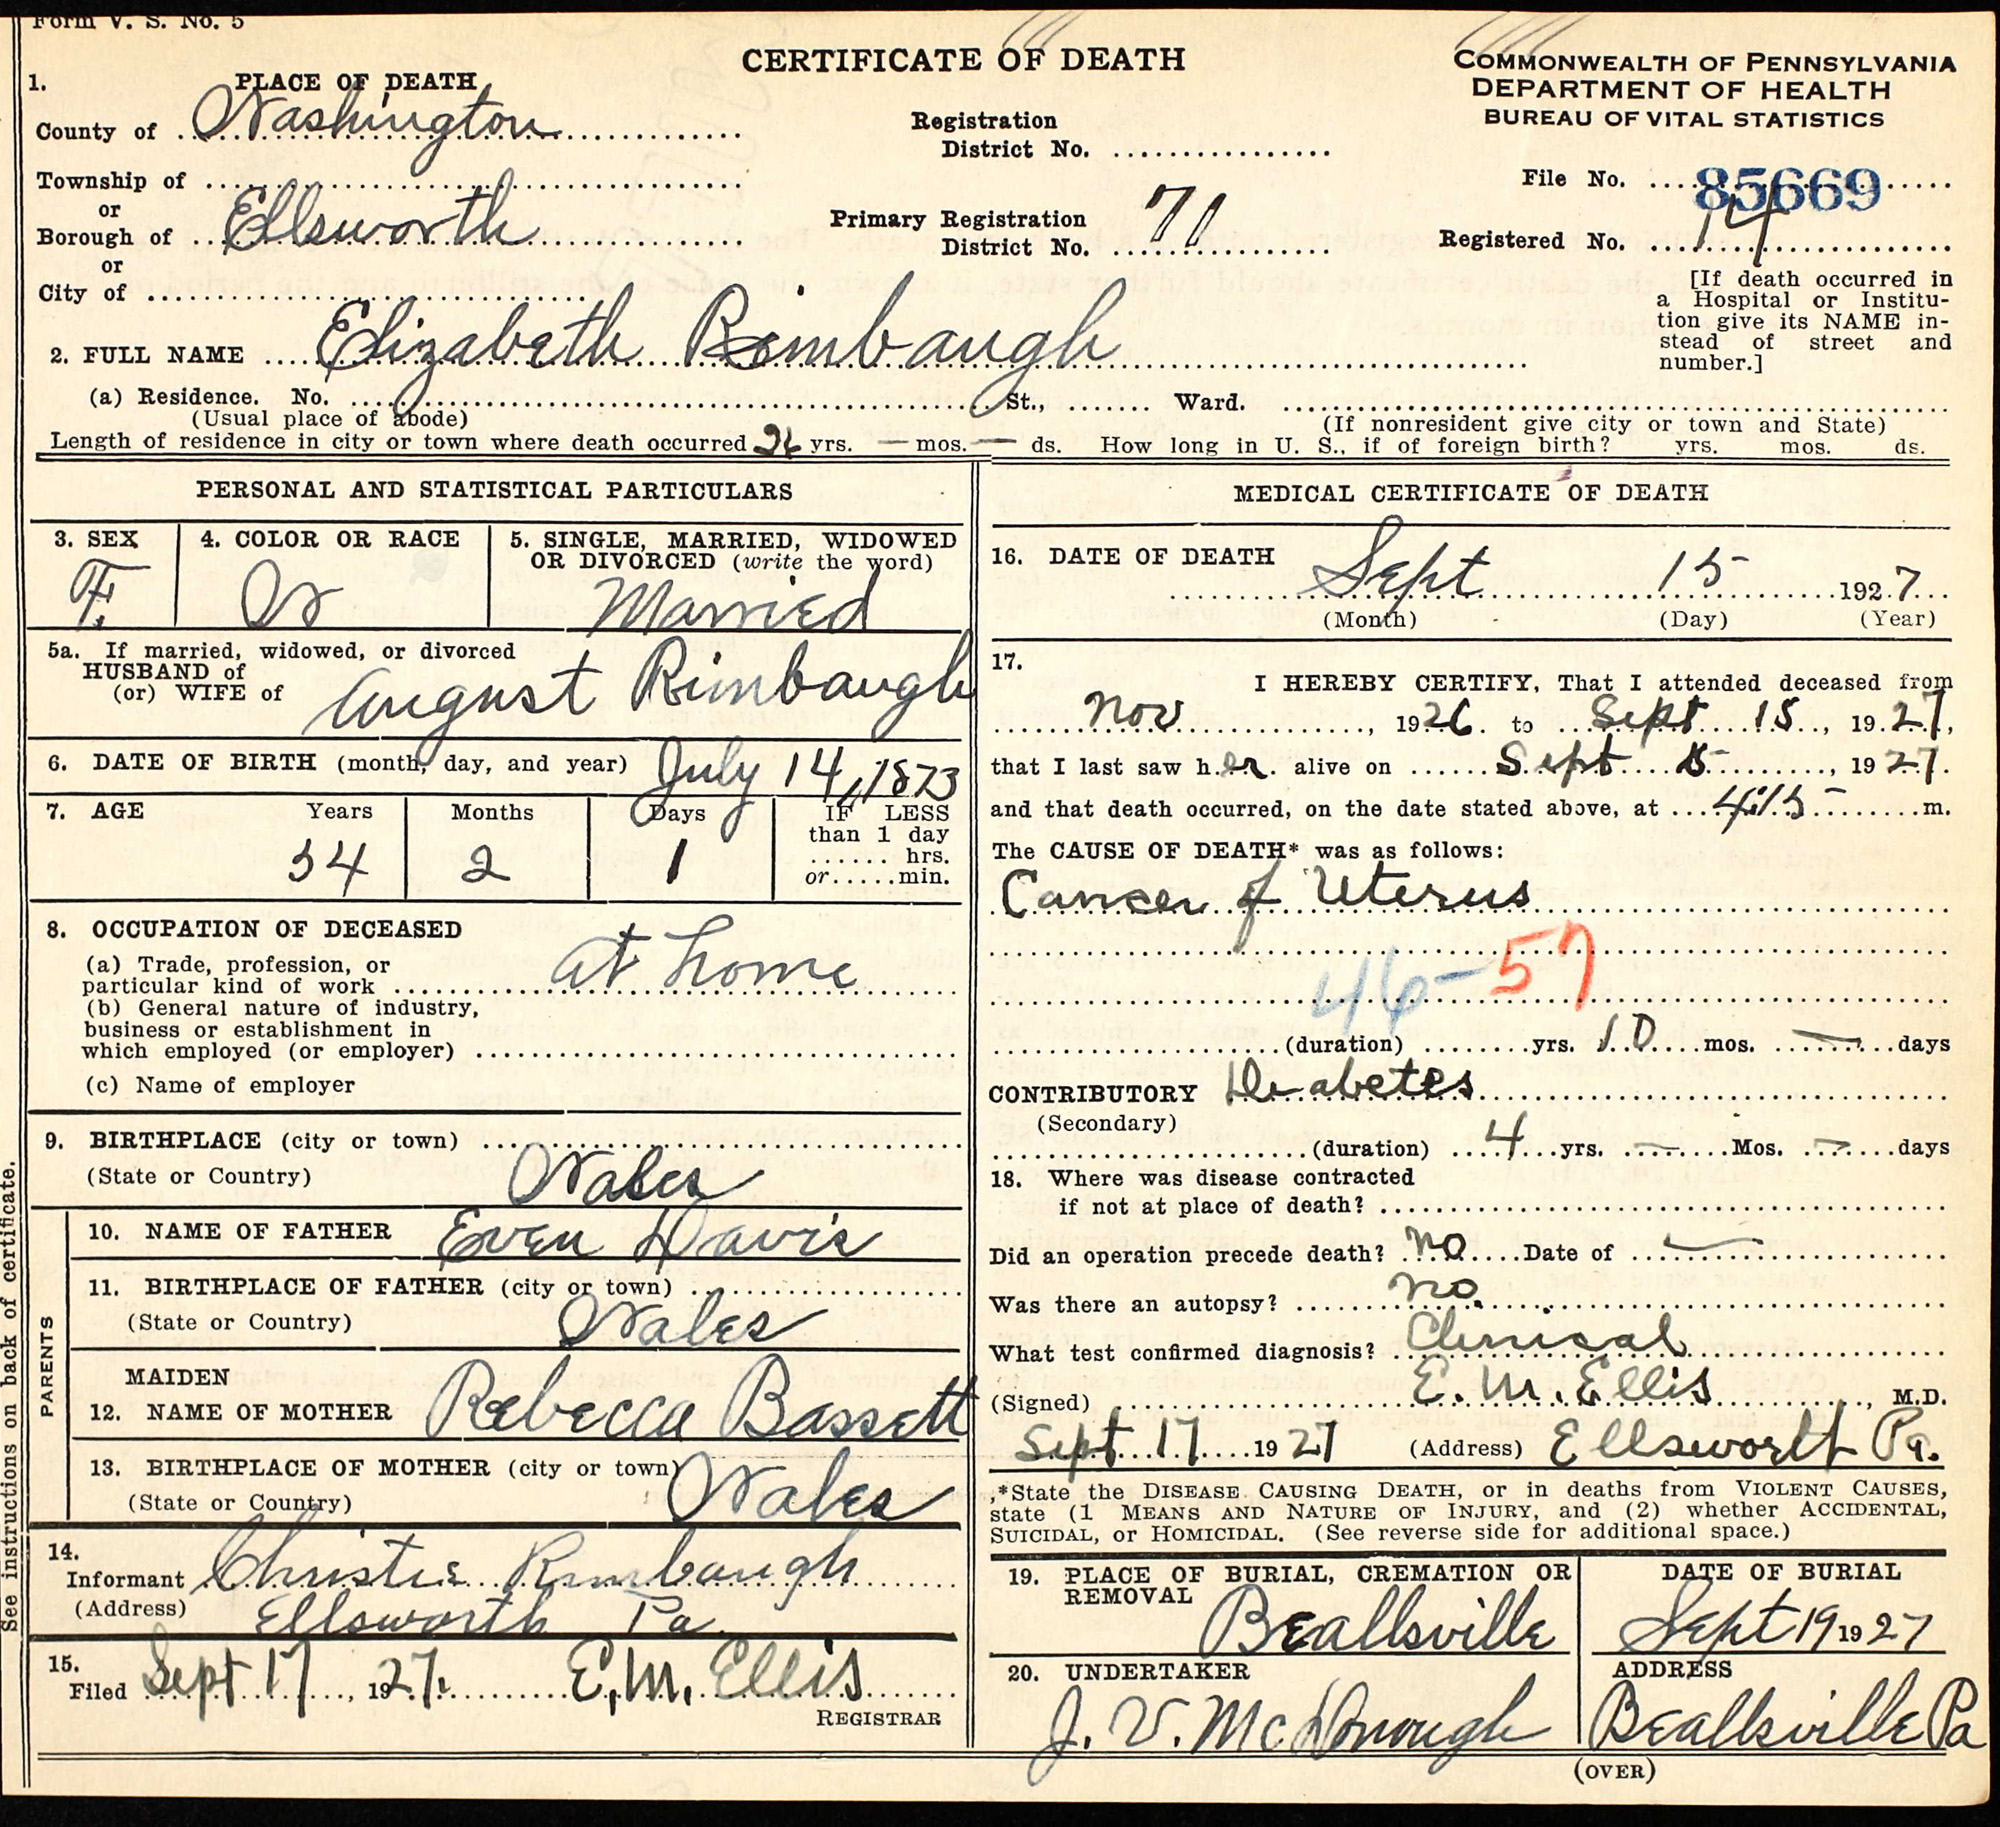 Form V. S. No. 5
CERTIFICATE OF DEATH
COMMONWEALTH OF PENNSYLVANIA
DEPARTMENT OF HEALTH
BUREAU OF VITAL STATISTICS
1. PLACE OF DEATH
County of Washington
Township of
or
Borough of Ellsworth
or
City of
Registration
District No.
Primary Registration
District No. 71
File No. 85669
Registered No. 14
[If death occurred in
a Hospital or Institu-
tion give its NAME in-
stead of street and
number.]
2. FULL NAME Elizabeth Rimbaugh
(a) Residence. No. St., Ward.
(Usual place of abode) (If nonresident give city or town and State)
Length of residence in city or town where death occurred 26 yrs. — mos. — ds. How long in U. S., if of foreign birth? yrs. mos. ds.
PERSONAL AND STATISTICAL PARTICULARS
3. SEX
F.
4. COLOR OR RACE
W
5. SINGLE, MARRIED, WIDOWED
OR DIVORCED (write the word)
Married
5a. If married, widowed, or divorced
HUSBAND of
(or) WIFE of August Rimbaugh
6. DATE OF BIRTH (month, day, and year) July 14, 1873
7. AGE Years Months Days IF LESS
than 1 day
hrs.
or min.
54 2 1
8. OCCUPATION OF DECEASED
(a) Trade, profession, or
particular kind of work at home
(b) General nature of industry,
business or establishment in
which employed (or employer)
(c) Name of employer
9. BIRTHPLACE (city or town)
(State or Country) Wales
PARENTS
10. NAME OF FATHER Even Davis
11. BIRTHPLACE OF FATHER (city or town)
(State or Country) Wales
MAIDEN
12. NAME OF MOTHER Rebecca Bassett
13. BIRTHPLACE OF MOTHER (city or town)
(State or Country) Wales
14.
Informant Christie Rimbaugh
(Address) Ellsworth Pa
15.
Filed Sept 17, 1927. E. M. Ellis
REGISTRAR
See instructions on back of certificate.
MEDICAL CERTIFICATE OF DEATH
16. DATE OF DEATH
Sept 15 1927
(Month) (Day) (Year)
17.
I HEREBY CERTIFY, That I attended deceased from
Nov, 1926 to Sept 15, 1927,
that I last saw her alive on Sept 15, 1927.
and that death occurred, on the date stated above, at 4:15 m.
The CAUSE OF DEATH* was as follows:
Cancer of Uterus
46-57
(duration) yrs. 10 mos. — days
CONTRIBUTORY Diabetes
(Secondary)
(duration) 4 yrs. — Mos. — days
18. Where was disease contracted
if not at place of death?
Did an operation precede death? no Date of —
Was there an autopsy? no
What test confirmed diagnosis? Clinical
(Signed) E. M. Ellis, M.D.
Sept 17 1927 (Address) Ellsworth Pa.
*State the DISEASE CAUSING DEATH, or in deaths from VIOLENT CAUSES,
state (1 MEANS AND NATURE OF INJURY, and (2) whether ACCIDENTAL,
SUICIDAL, or HOMICIDAL. (See reverse side for additional space.)
19. PLACE OF BURIAL, CREMATION OR
REMOVAL
Beallsville
DATE OF BURIAL
Sept 19 1927
20. UNDERTAKER
J. V. McDonough
ADDRESS
Beallsville Pa
(OVER)